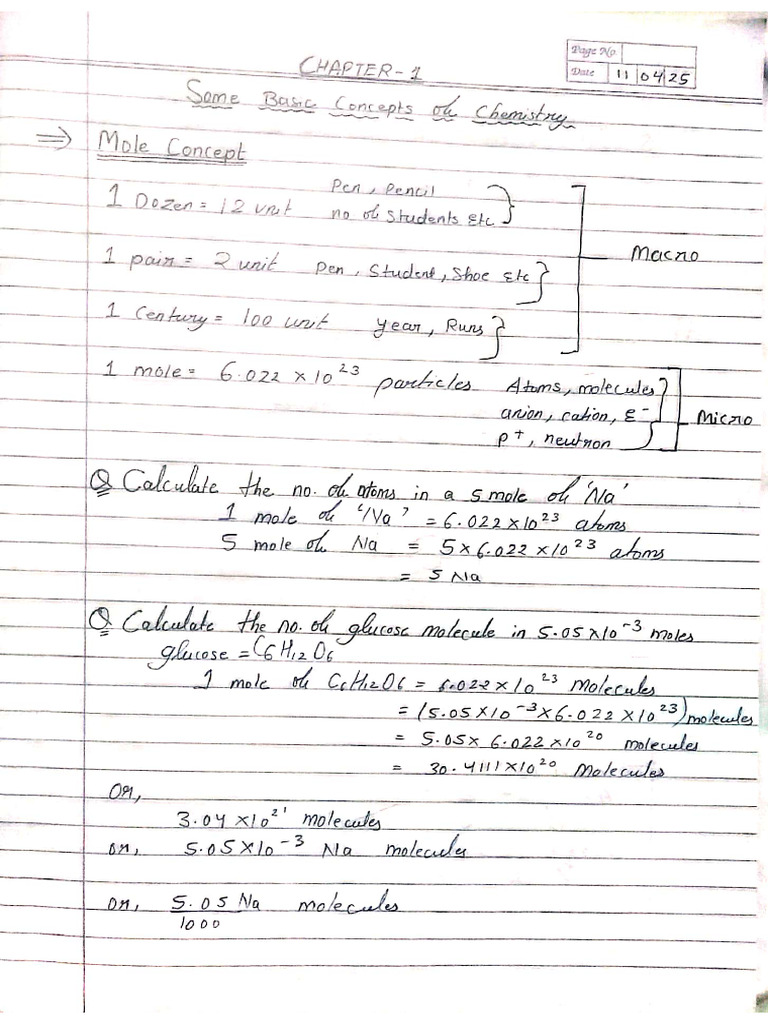 Page No
CHAPTER-1
Date 11 04 25
Some Basic Concepts of Chemistry
⇒ Mole Concept
1 Dozen = 12 unit Pen, Pencil
no of Students Etc
1 pair = 2 unit Pen, Student, Shoe Etc
Macro
1 Century = 100 unit year, Runs
1 mole = 6.022 × 10^23 particles Atoms, molecules
anion, cation, e^-
p^+, neutron
Micro
Q Calculate the no. of atoms in a 5 mole of 'Na'
1 mole of 'Na' = 6.022 × 10^23 atoms
5 mole of Na = 5 × 6.022 × 10^23 atoms
= 5 Na
Q Calculate the no. of glucose molecule in 5.05 × 10^-3 moles
glucose = C6H12O6
1 mole of C6H12O6 = 6.022 × 10^23 Molecules
= (5.05 × 10^-3 × 6.022 × 10^23) molecules
= 5.05 × 6.022 × 10^20 molecules
= 30.4111 × 10^20 Molecules
Or,
3.04 × 10^21 molecules
or, 5.05 × 10^-3 Na molecules
or, 5.05 Na molecules
1000